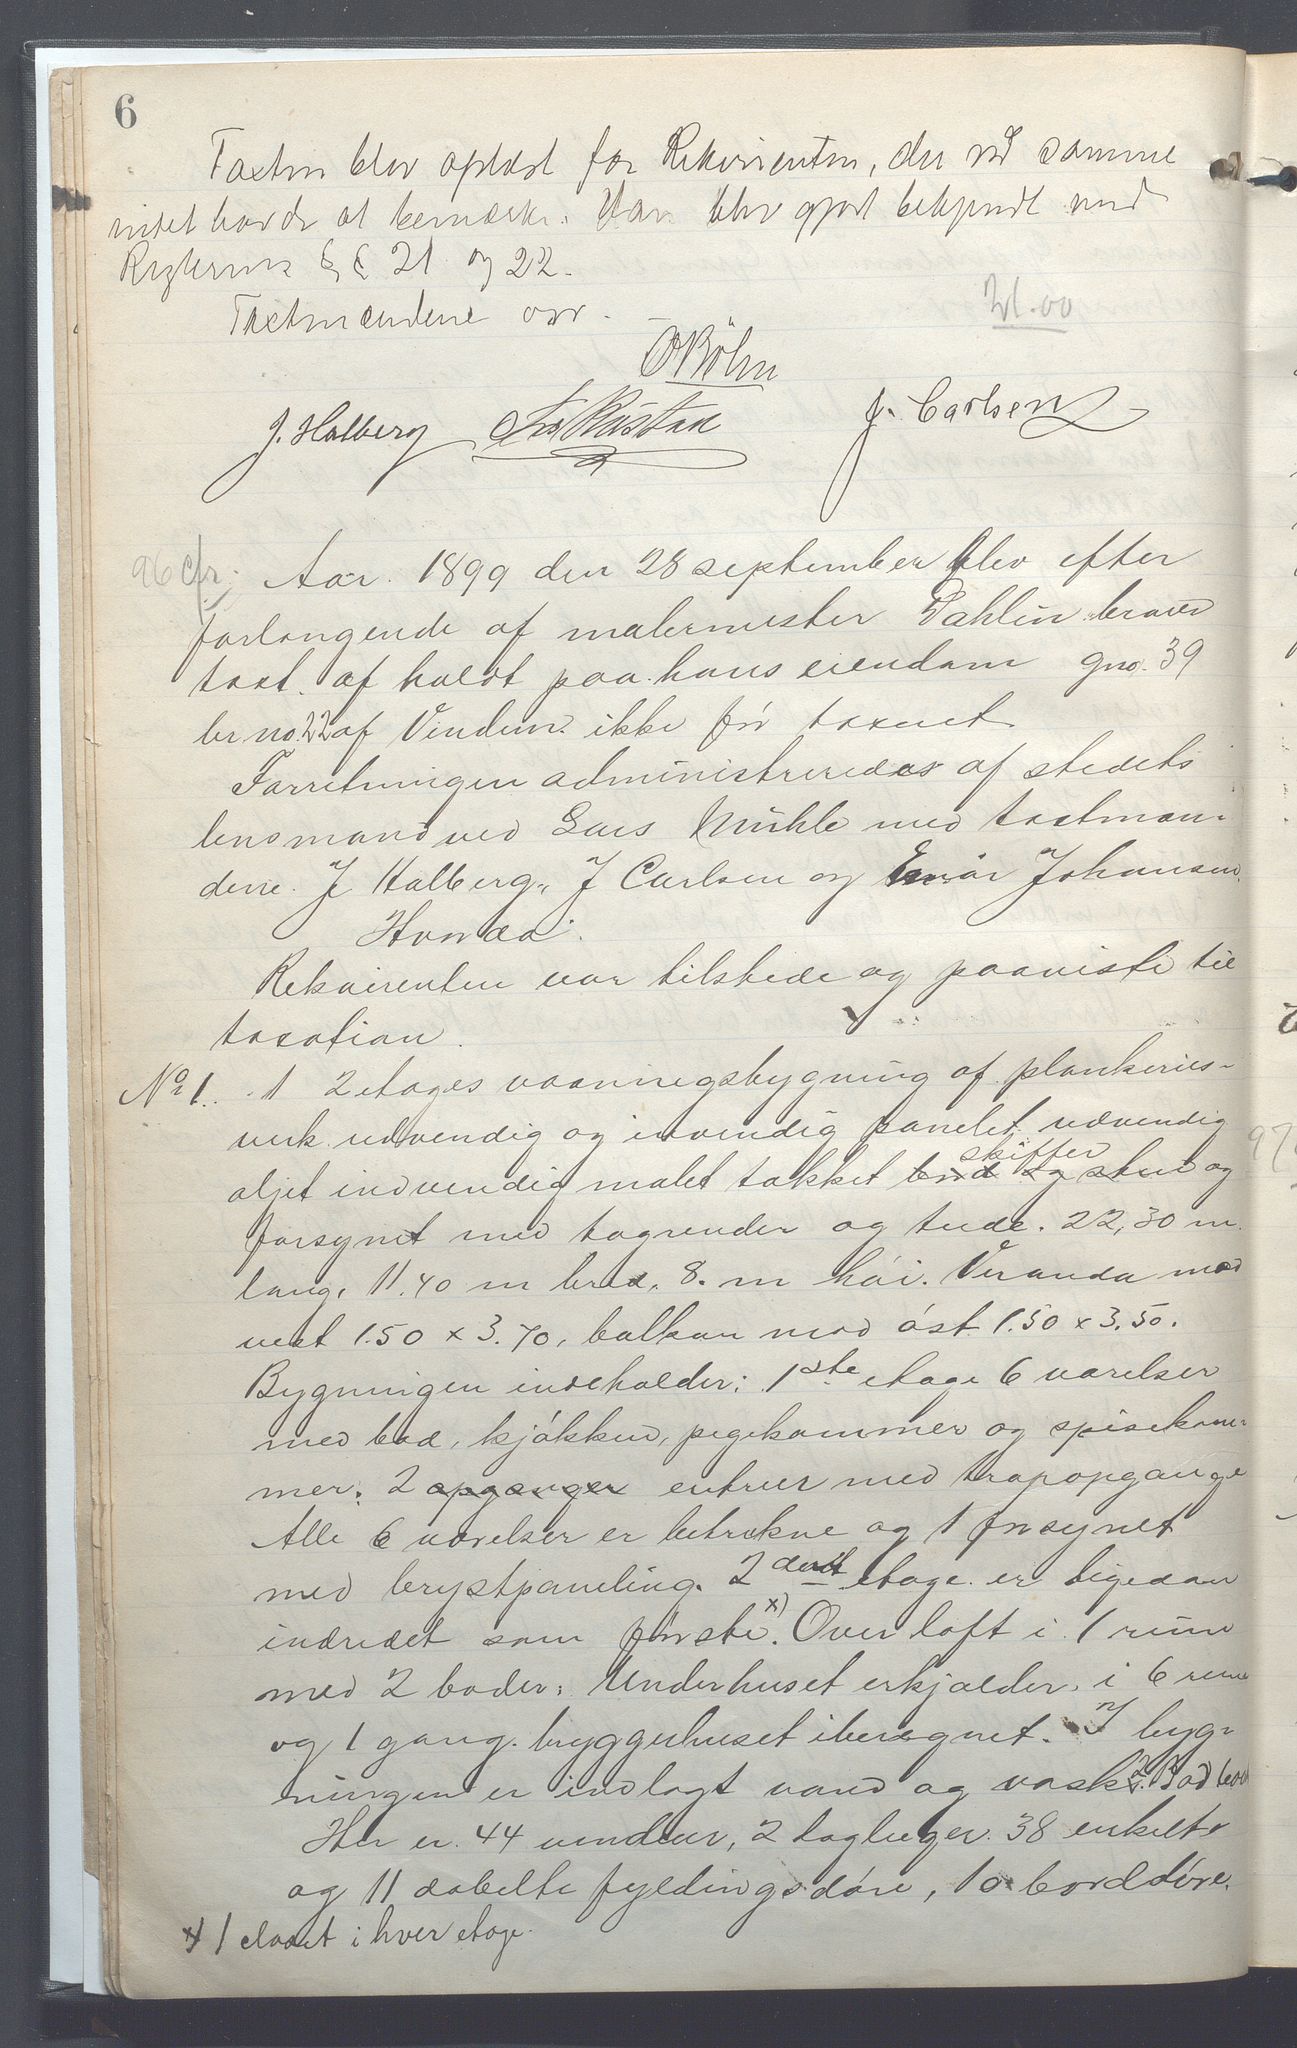 6
Taxten blev oplæst for Rekvirenten, der ved samme
intet havde at bemærke. Han blev gjort bekjendt med
Reglernes §§ 21 og 22.
Taxtmændene oxr.
21.00
O Böhn
J. Halberg
Rustad
J. Carlsen
96 cfr.
Aar 1899 den 28 september blev efter
forlangende af malermester Dahlin brand
taxt afholdt paa hans eiendom gno. 39
br no. 22 af Vindern ikke før taxeret
Forretningen administreredes af stedets
lensmand ved Lars Mühle med taxtmæn-
dene J Halberg, J Carlsen og Einar Johansen.
Hvorda:
Rekvirenten var tilstede og paaviste til
taxation.
No 1. 1 2 etages vaaningsbygning af plankeries-
verk udvendig og indvendig panelet, udvendig
oljet indvendig malet takket bord og sten skiffer og
forsynet med tagrender og tude. 22,30 m.
lang, 11.40 m bred, 8. m høi. Veranda mod
vest 1.50 x 3.70, balkon mod øst 1.50 x 3.50.
Bygningen indeholder: 1ste etage 6 værelser
med bad, kjøkken, pigekammer og spisekam-
mer, 2 opganger entreer med trapopgange
Alle 6 værelser er betrukne og 1 forsynet
med brystpaneling. 2den etage er ligedan
indredet som første. x) Over loft i 1 rum
med 2 boder. Under huset er kjælder i 6 rum
og 1 gang. bryggerhuset iberegnet. I byg-
ningen er indlagt vand og vask. 2 Bad
Her er 44 vinduer, 2 tagluger. 38 enkelte
og 11 dobelte fyldingsdøre, 10 borddøre.
x) 1 closet i hver etage.
97